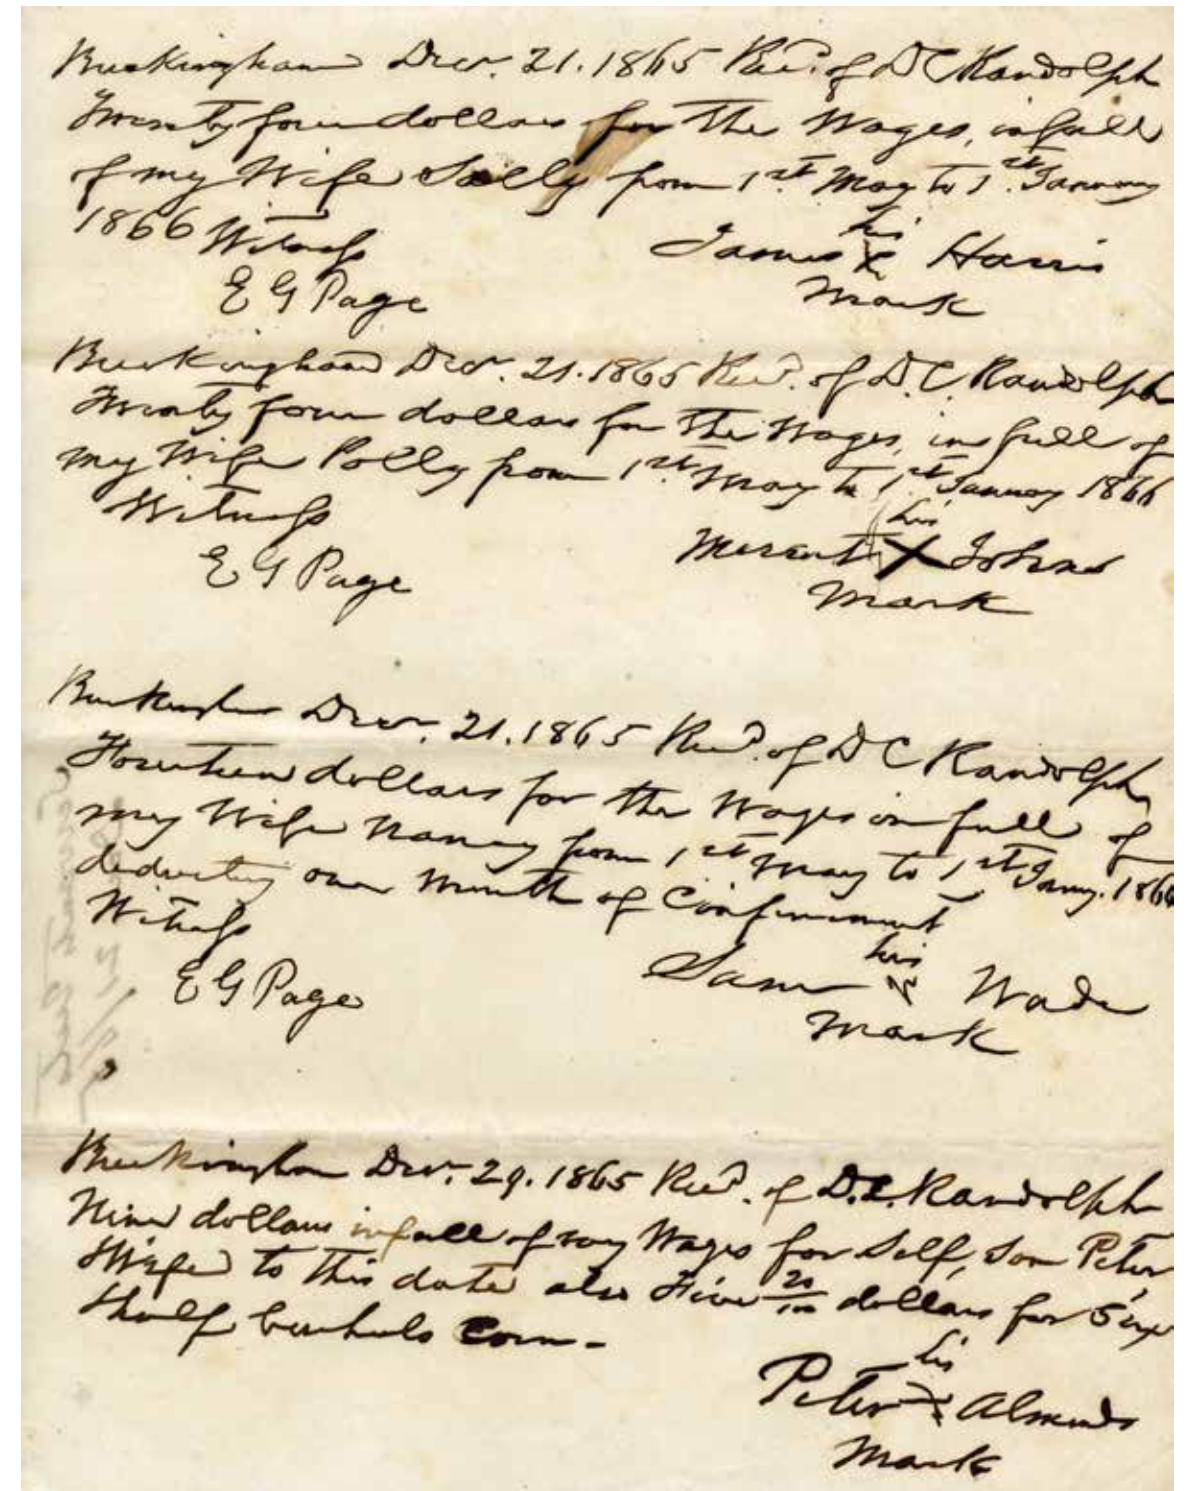 Buckingham Decr. 21. 1865 Recd. of D C Randolph
Twenty four dollars for the Wages, in full
of my Wife Sally from 1st May to 1st January
1866 Witness
his
James X Harris
mark
E G Page
Buckingham Decr. 21. 1865 Recd. of D. C. Randolph
Twenty four dollars for the Wages, in full of
my Wife Polly from 1st May to 1st January 1866
Witness
his
X Johns
mark
E G Page
Buckingham Decr. 21. 1865 Recd. of D C Randolph
Fourteen dollars for the Wages in full of
my Wife Nancy from 1st May to 1st Jany. 1866
deducting one Month of Confinement
Witness
his
Sam X Wade
mark
E G Page
Buckingham Decr. 29. 1865 Recd. of D. C. Randolph
Nine dollars in full of my Wages for Self, Son Peter,
& Wife to this date also Five 20/100 dollars for Six
& half bushels Corn -
his
Peter X Almonds
mark